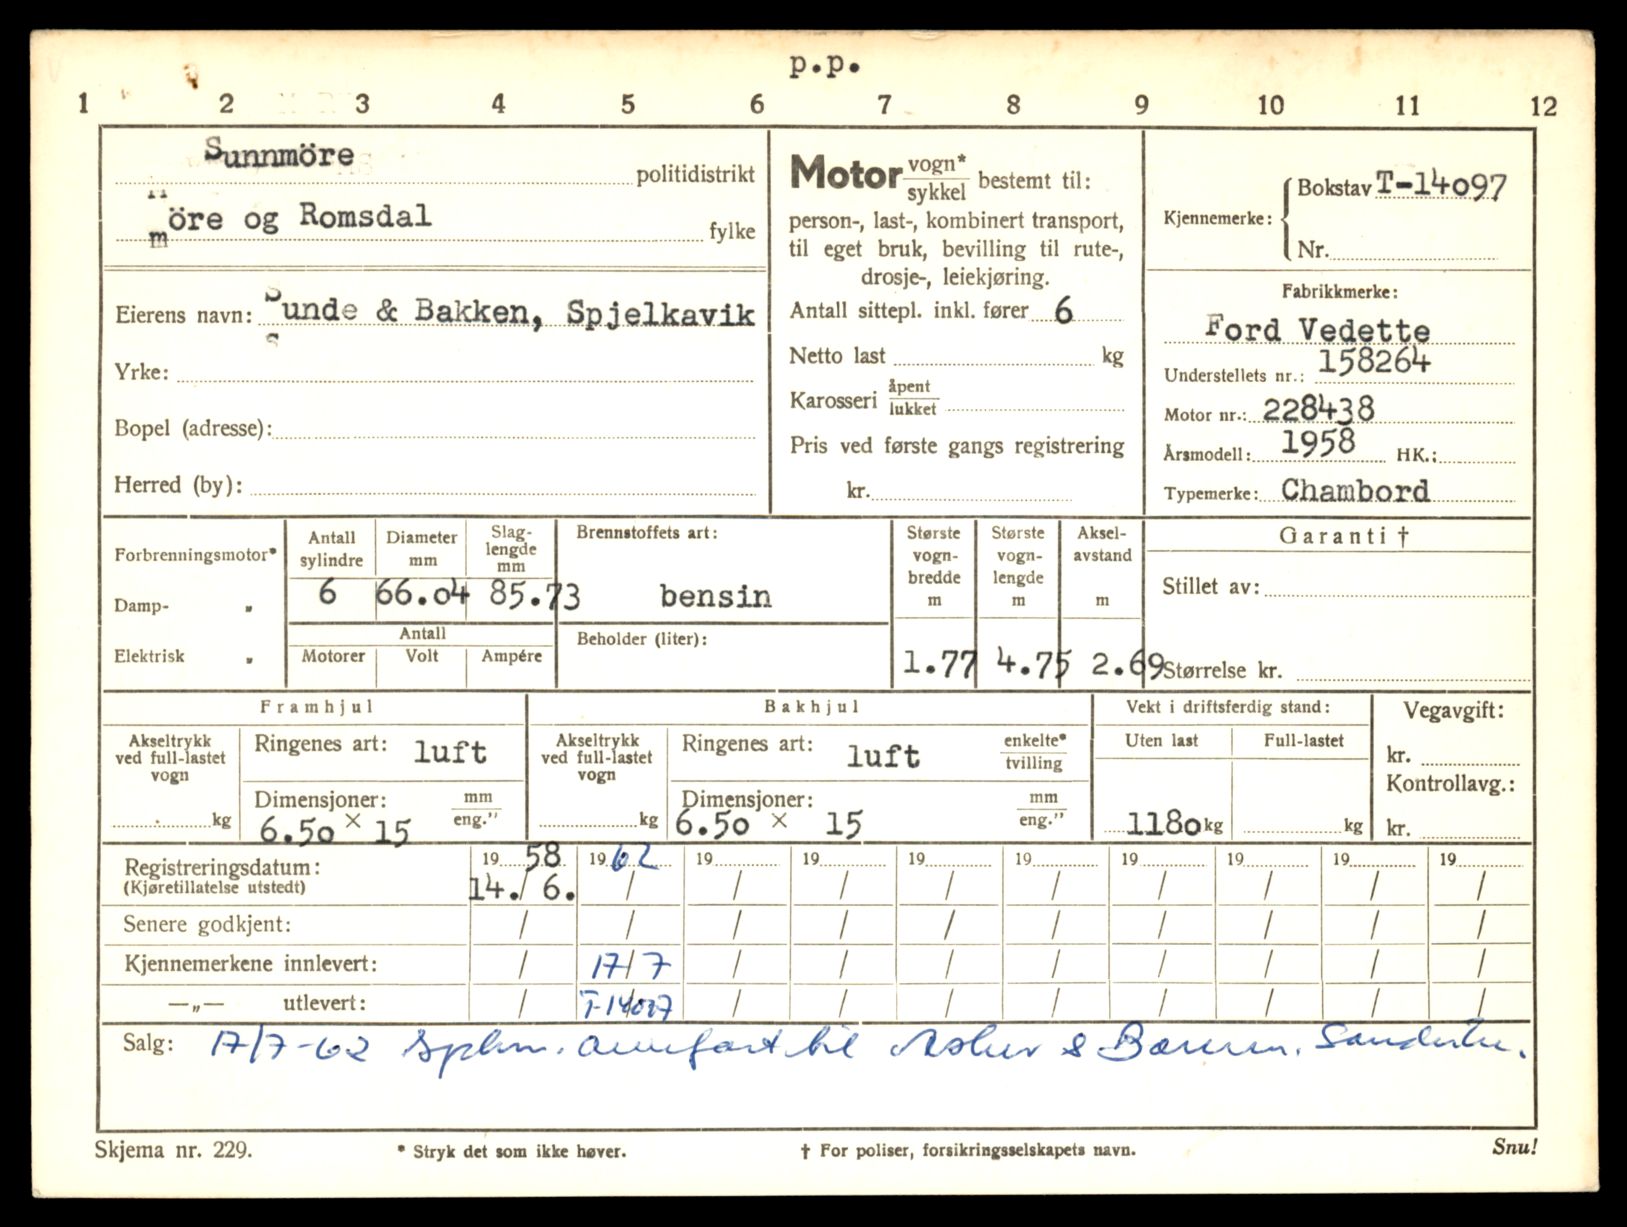 p.p.
1 2 3 4 5 6 7 8 9 10 11 12
Sunnmöre politidistrikt
möre og Romsdal fylke
Eierens navn: Sunde & Bakken, Spjelkavik
Yrke:
Bopel (adresse):
Herred (by):
Motor vogn* sykkel bestemt til:
person-, last-, kombinert transport,
til eget bruk, bevilling til rute-,
drosje-, leiekjøring.
Antall sittepl. inkl. fører 6
Netto last kg
Karosseri åpent lukket
Pris ved første gangs registrering
kr.
Kjennemerke: Bokstav T-14097
Nr.
Fabrikkmerke:
Ford Vedette
Understellets nr.: 158264
Motor nr.: 228438
Årsmodell: 1958 HK.:
Typemerke: Chambord
Forbrenningsmotor*
Damp- „
Elektrisk „
Antall sylindre 6
Diameter mm 66.04
Slag- lengde mm 85.73
Antall
Motorer Volt Ampére
Brennstoffets art:
bensin
Beholder (liter):
Største vogn- bredde m 1.77
Største vogn- lengde m 4.75
Aksel- avstand m 2.69
Garanti †
Stillet av:
Størrelse kr.
Framhjul
Akseltrykk ved full-lastet vogn kg
Ringenes art: luft
Dimensjoner: mm eng.”
6.50 × 15
Bakhjul
Akseltrykk ved full-lastet vogn kg
Ringenes art: luft enkelte* tvilling
Dimensjoner: mm eng.”
6.50 × 15
Vekt i driftsferdig stand:
Uten last Full-lastet
1180 kg kg
Vegavgift:
kr.
Kontrollavg.:
kr.
Registreringsdatum: 19 58 19 62 19 19 19 19 19 19 19 19
(Kjøretillatelse utstedt) 14./6. / / / / / / / / /
Senere godkjent: / / / / / / / / / /
Kjennemerkene innlevert: / 17/7 / / / / / / / /
—„— utlevert: / T-14097 / / / / / / / /
Salg: 17/7-62 til & Bærum.
Skjema nr. 229. * Stryk det som ikke høver. † For poliser, forsikringsselskapets navn. Snu!